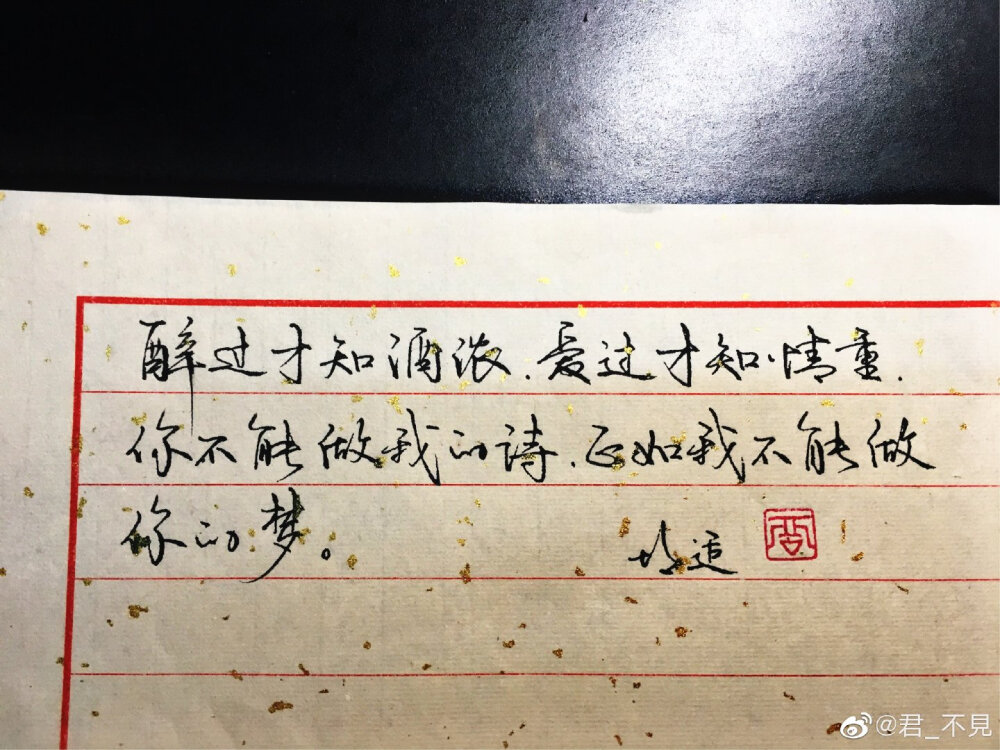 醉过才知酒浓.爱过才知情重.
你不能做我的诗.正如我不能做
你的梦。
适
周
@君_不見